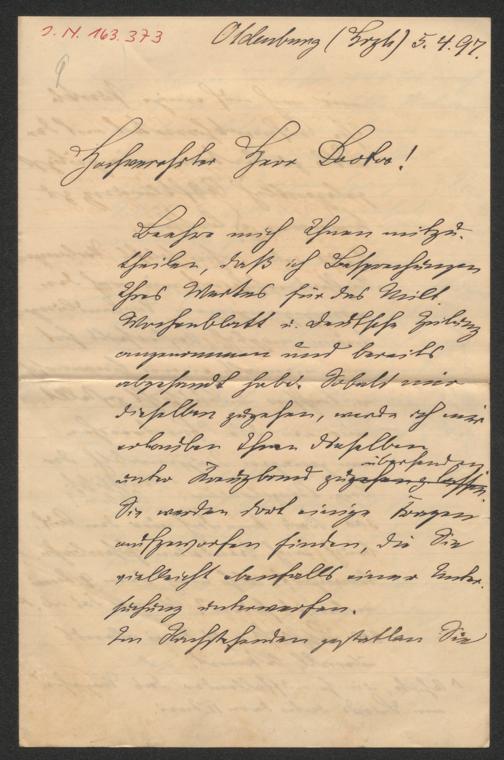 J. N. 163.373
Oldenburg (Grzh) 5.4.97.
Hochverehrter Herr Doctor!
Beehre mich Ihnen mitzu-
theilen, daß ich Besprechungen
Ihres Werkes für das Milt.
Wochenblatt u. Deutsche Zeitung
angenommen und bereits
abgesandt habe. Sobald mir
dieselben zugehen, werde ich mir
erlauben Ihnen dieselben
übersenden
unter Kreuzband
Sie werden dort einige Fragen
aufgeworfen finden, die Sie
vielleicht ebenfalls einer Unter-
suchung unterwerfen.
Im Nachstehenden gestatten Sie